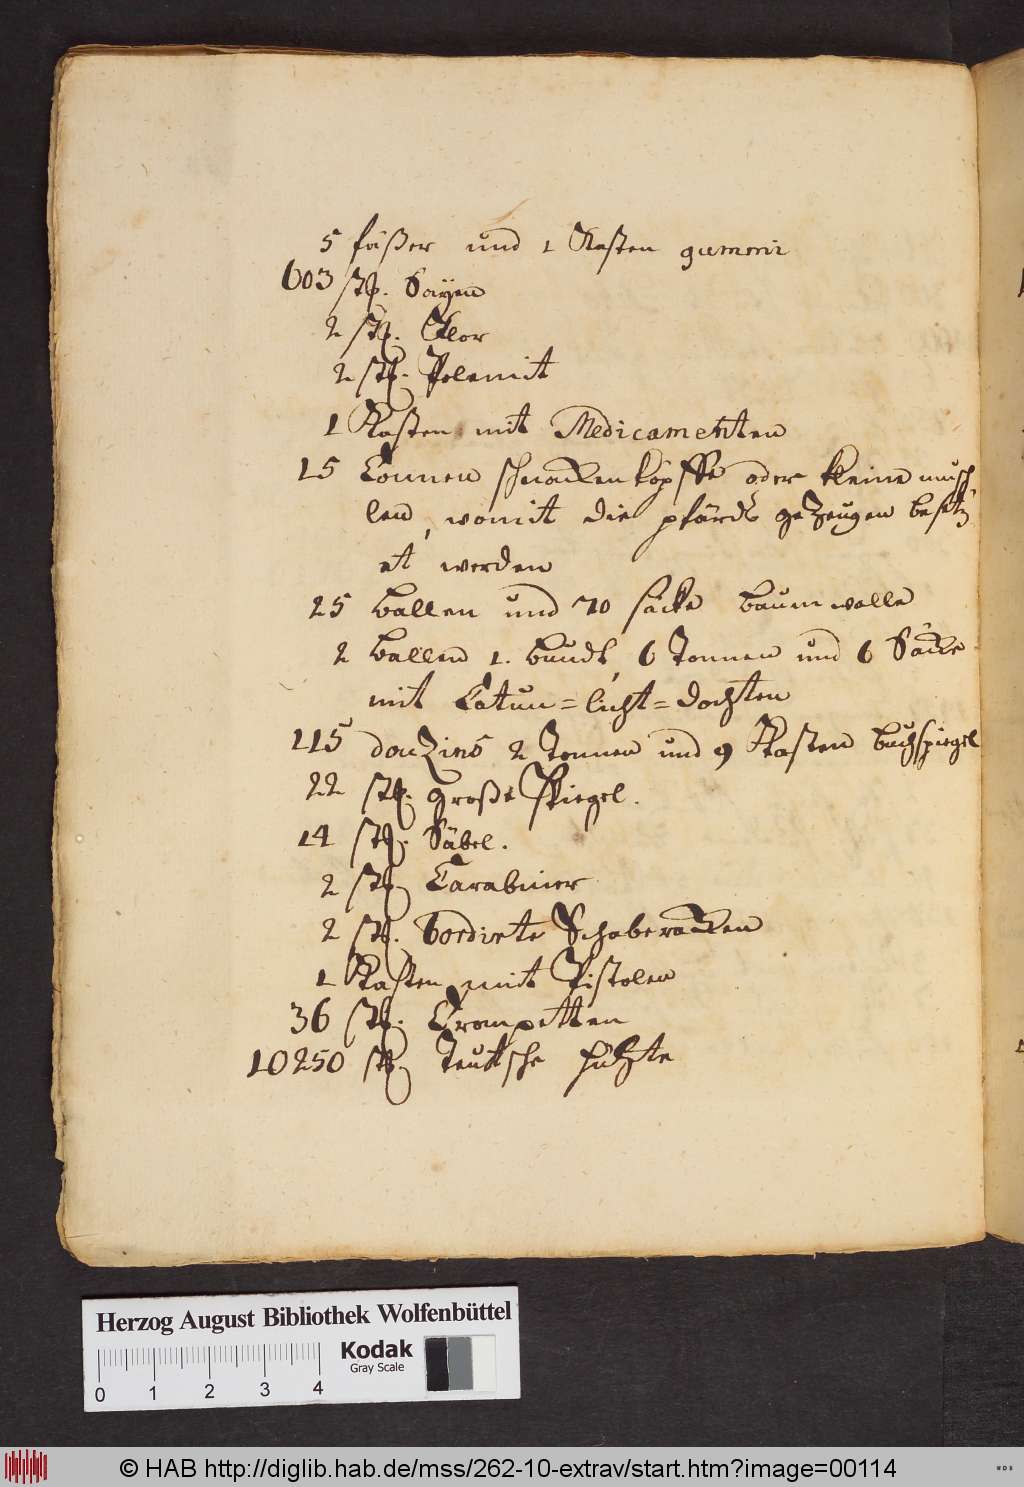 5 fäßer und 1 Kasten gummi
603 stk. Sayen
2 stk. Flor
2 stk. Polemit
1 Kasten mit Medicamenten
15 Tonnen schnackenköpffe oder kleine musch
len, womit die pfärds gezeugen besetz
et werden
25 ballen und 70 säcke baumwolle
2 ballen 1. bundt, 6 Tonnen und 6 Säcke
mit Catun=licht=dochten
115 douzins 2 Tonnen und 9 Kasten buchspiegel
22 stk. große Spiegel.
14 stk. Säbel.
2 stk. Carabinier
2 stk. bordirte Schaberacken
1 Kasten mit Pistolen
36 stk. Trompetten
10250 stk. Teutsche hühte
Herzog August Bibliothek Wolfenbüttel
Kodak
Gray Scale
0 1 2 3 4
© HAB http://diglib.hab.de/mss/262-10-extrav/start.htm?image=00114